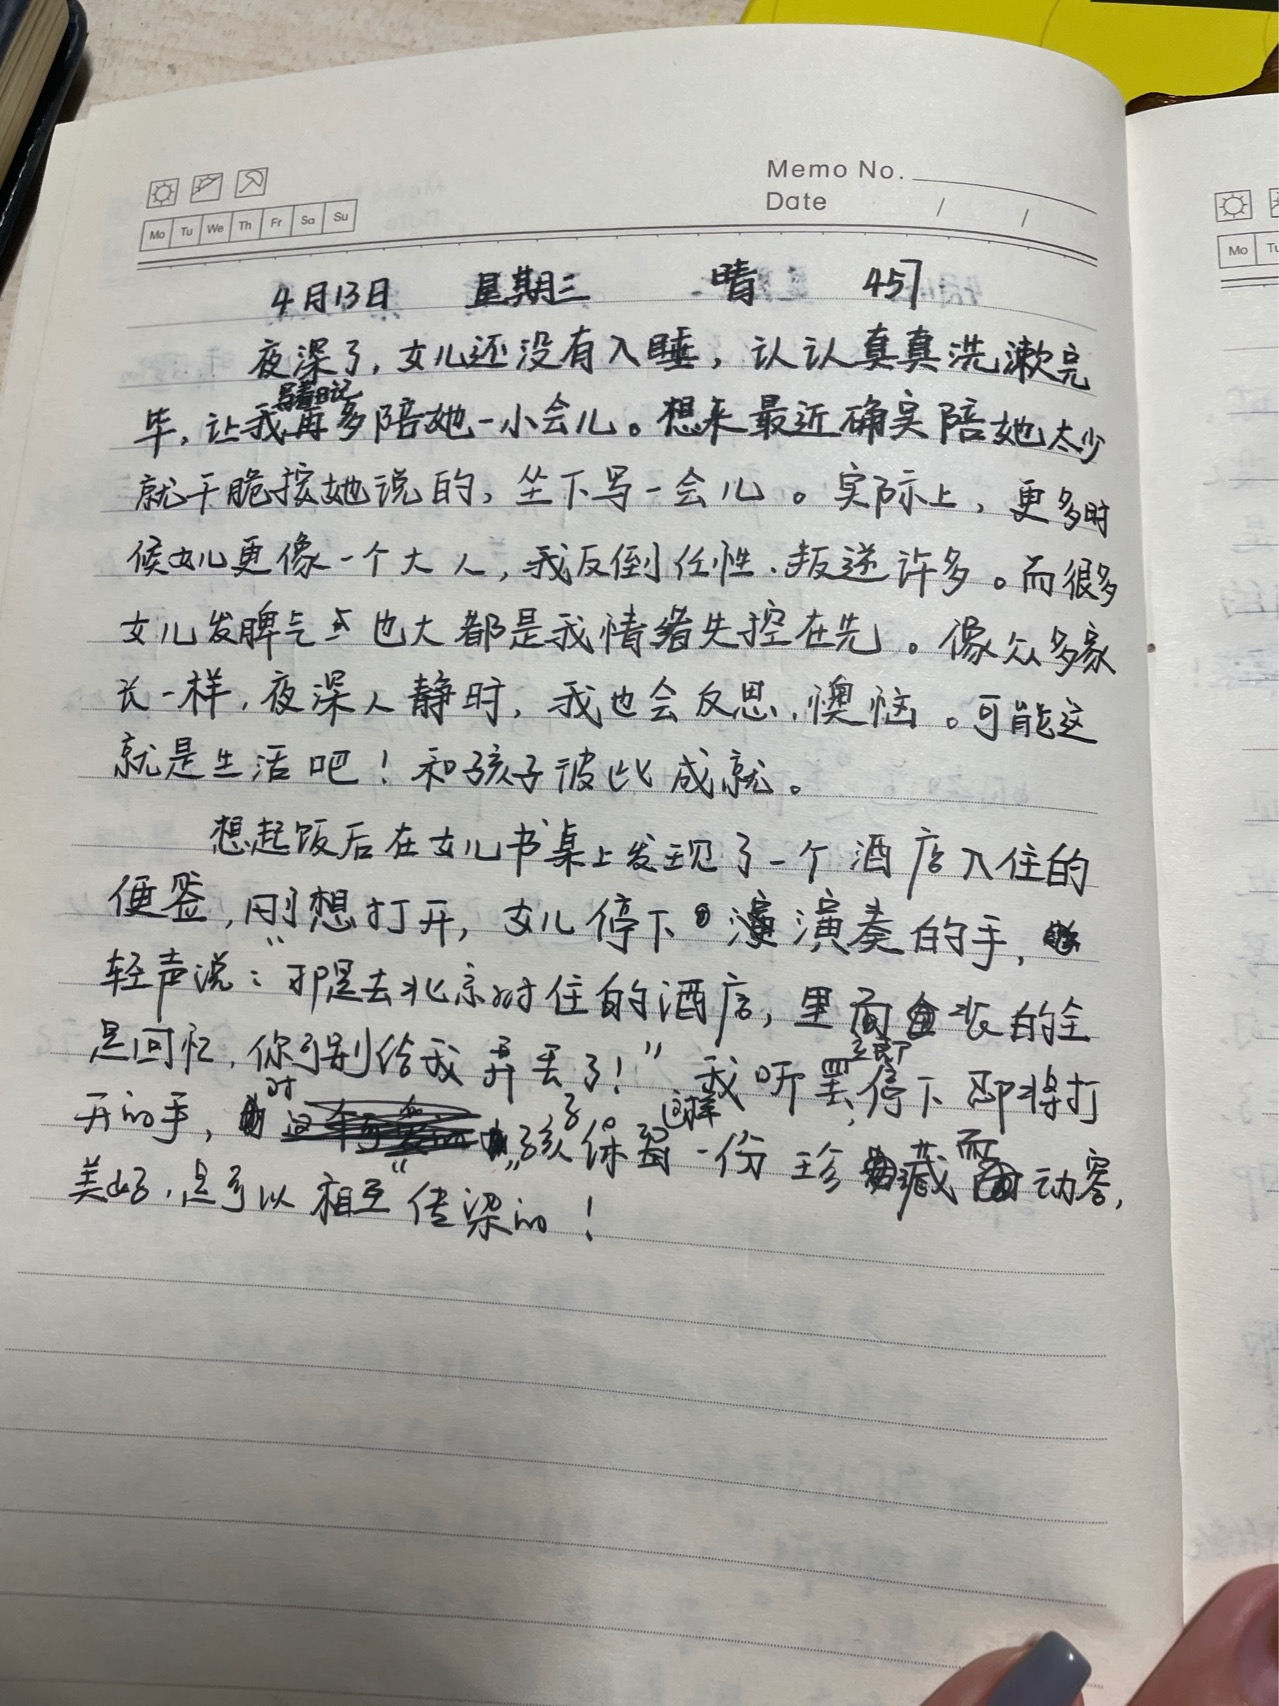 Memo No.
Date / /
Mo Tu We Th Fr Sa Su
Mo Tu
4月13日 星期三 晴 457
夜深了，女儿还没有入睡，认认真真洗漱完
毕，让我写着日记再多陪她一小会儿。想来最近确实陪她太少
就干脆按她说的，坐下写一会儿。实际上，更多时
候女儿更像一个大人，我反倒任性、叛逆许多。而很多
女儿发脾气也大都是我情绪失控在先。像众多家
长一样，夜深人静时，我也会反思、懊恼。可能这
就是生活吧！和孩子彼此成就。
想起饭后在女儿书桌上发现了一个酒店入住的
便签，刚想打开，女儿停下演奏的手，
轻声说：“那是去北京时住的酒店，里面装的全
是回忆，你可别给我弄丢了！”我听罢，立即停下即将打
开的手，对孩子保留这样一份珍藏而动容，
美好，是可以“相互”传染的！